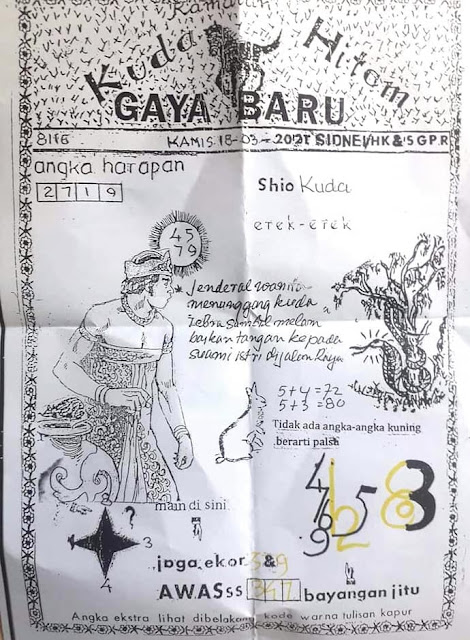 Kuda Hitam
GAYA BARU
KAMIS 18-03-2021 SIDNEY HK & SGP.R
angka harapan
2 7 1 9
Shio Kuda
erek-erek
45
79
Jenderal wanita
menunggang kuda
zebra sambil melam
baikan tangan kepada
suami istri dijalan Raya
5+4=72
5+3=80
Tidak ada angka-angka kuning
berarti palsu
main di sini
?
3
4
jaga ekor &
AWASss bayangan jitu
Angka ekstra lihat dibelakang kode warna tulisan kapur